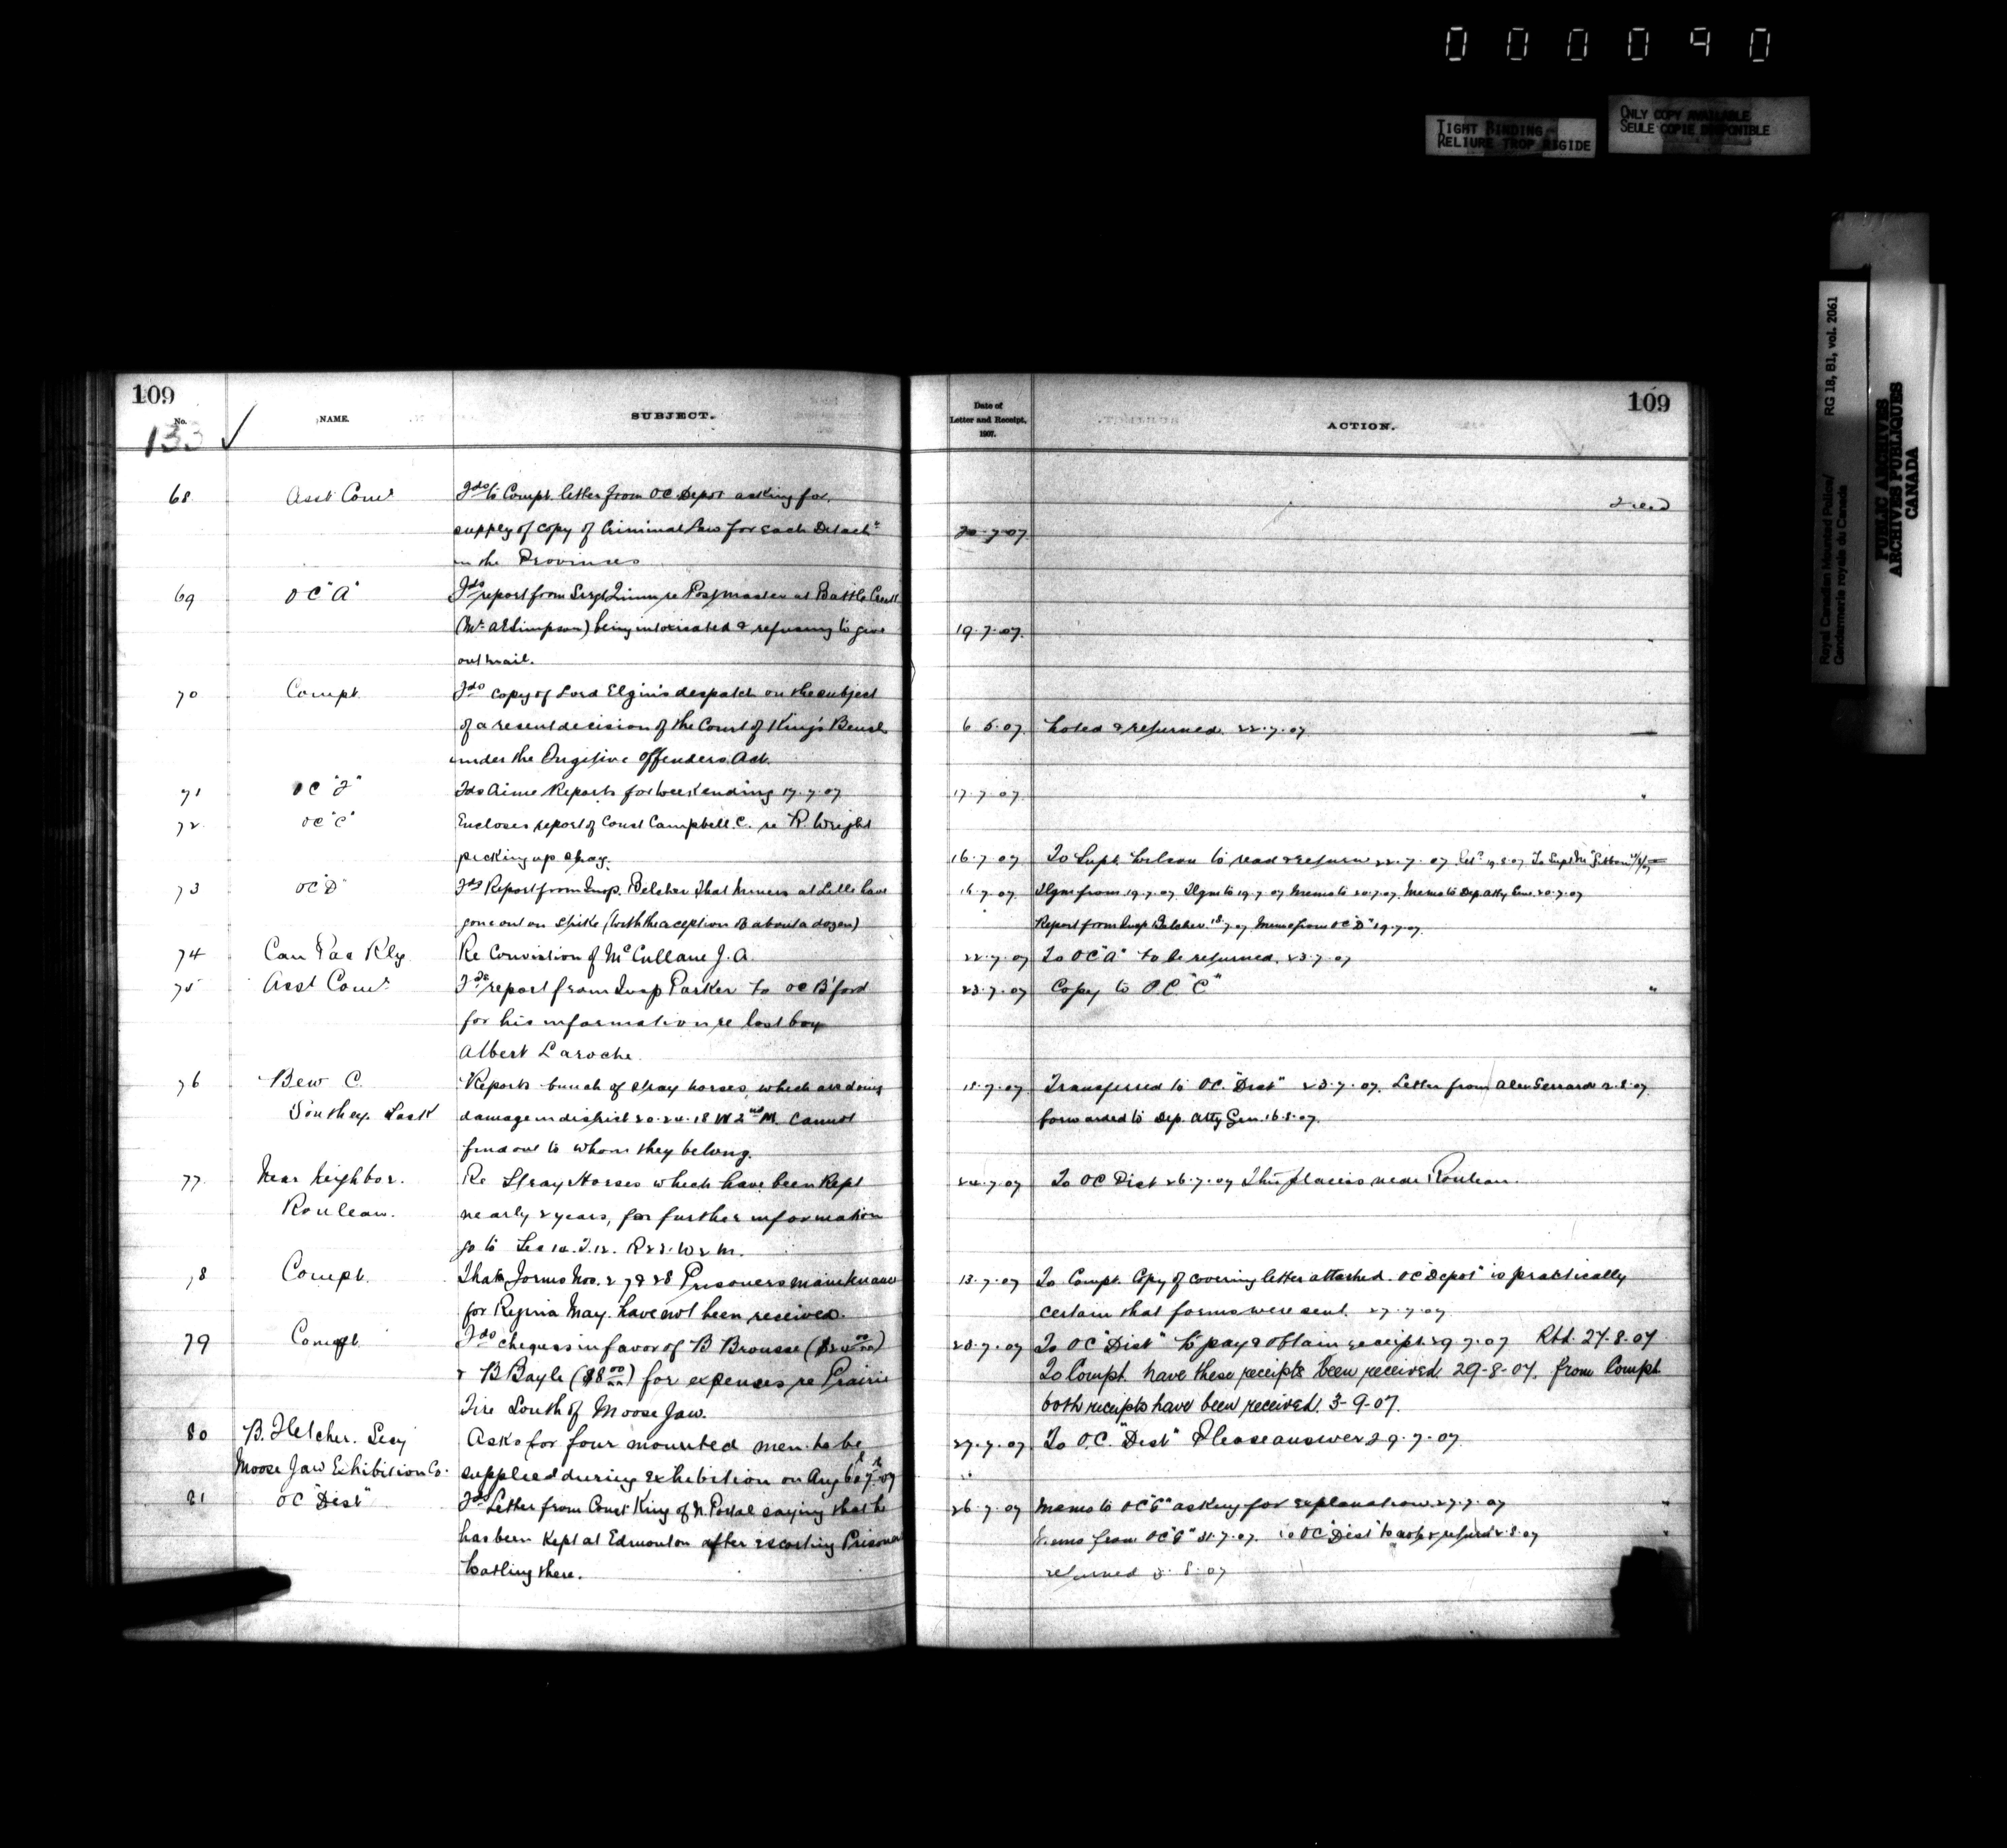 000090
TIGHT BINDING
RELIURE TROP RIGIDE
ONLY COPY AVAILABLE
SEULE COPIE DISPONIBLE
RG 18, B1, vol. 2061
Royal Canadian Mounted Police/
Gendarmerie royale du Canada
PUBLIC ARCHIVES
ARCHIVES PUBLIQUES
CANADA
109
No. NAME. SUBJECT.
133 ✓
68 Asst Comr Fds to Compt. letter from OC Depot asking for
supply of copy of Criminal Law for each Detach
in the Provinces
69 OC "A" Fds report from Sergt Quinn re Postmaster at Battle Creek
(Mr A E Simpson) being intoxicated & refusing to give
out mail.
70 Compt. Fds copy of Lord Elgin's despatch on the subject
of a resent decision of the Court of King's Bench
under the Fugitive Offenders Act.
71 OC "F" Fds Crime Reports for week ending 17.7.07
72 OC "C" Encloses report of Const Campbell. C. re R. Wright
picking up stray.
73 OC "D" Fds Report from Insp. Belcher that miners at Lille have
gone out on strike (with the exception of about a dozen)
74 Can Pac Rly. Re Conviction of McCullane J. A.
75 Asst Comr Fds report from Insp Parker to OC B'ford
for his information re lost boy
Albert Laroche.
76 Bew C. Reports bunch of stray horses, which are doing
Southey Sask damage in district 20.24.18 W 2nd M. Cannot
find out to whom they belong.
77 Near Neighbor. Re Stray Horses which have been kept
Rouleau. nearly 2 years, for further information
go to Sec 14. T. 12. R 23. W 2 M.
78 Compt. That Forms Nos. 27 & 28 Prisoners maintenance
for Regina May. have not been received.
79 Compt Fds cheques in favor of B Brousse
& B Bayle ($8 00) for expenses re Prairie
Fire South of Moose Jaw.
80 B. Fletcher. Secy Asks for four mounted men to be
Moose Jaw Exhibition Co. supplied during exhibition on Aug 6 & 7th 07
81 OC "Dist" Fds Letter from Const King of N. Portal saying that he
has been kept at Edmonton after escorting Prisoner
there.
Date of
Letter and Receipt,
1907.
ACTION. 109
20.7.07
19.7.07.
6 6.07. Noted & returned 22.7.07
17.7.07.
16.7.07 To Supt. Wilson to read & return 22.7.07
16.7.07. Tlgm from 19.7.07 Tlgm to 19.7.07 Memo to 20.7.07. Memo to Dep Atty Gen. 20.7.07
Report from Insp Belcher 18.7.07 Memo from OC "D" 19.7.07.
22.7.07 To OC "A" to be returned. 23.7.07
23.7.07 Copy to O.C. "C" "
18.7.07 Transferred to OC. "Dist" 23.7.07. Letter from Alex Gerrard 2.8.07
forwarded to Dep. Atty Gen. 16.8.07.
24.7.07 To OC Dist 26.7.07 This place is near Rouleau.
13.7.07 To Compt. Copy of covering letter attached. OC "Depot" is practically
certain that forms were sent. 27.7.07
23.7.07 To OC "Dist" to pay & obtain receipt 29 7.07 Rtd. 27-8-07
To Compt. have these receipts been received 29-8-07. from Compt
both receipts have been received. 3-9-07.
27.7.07 To O.C. "Dist" Please answer 29.7.07
26.7.07 Memo to OC "G" asking for explanation. 27.7.07
Memo from OC "G" 31.7.07. to OC "Dist" to note & return 2.8.07
returned 3.8.07